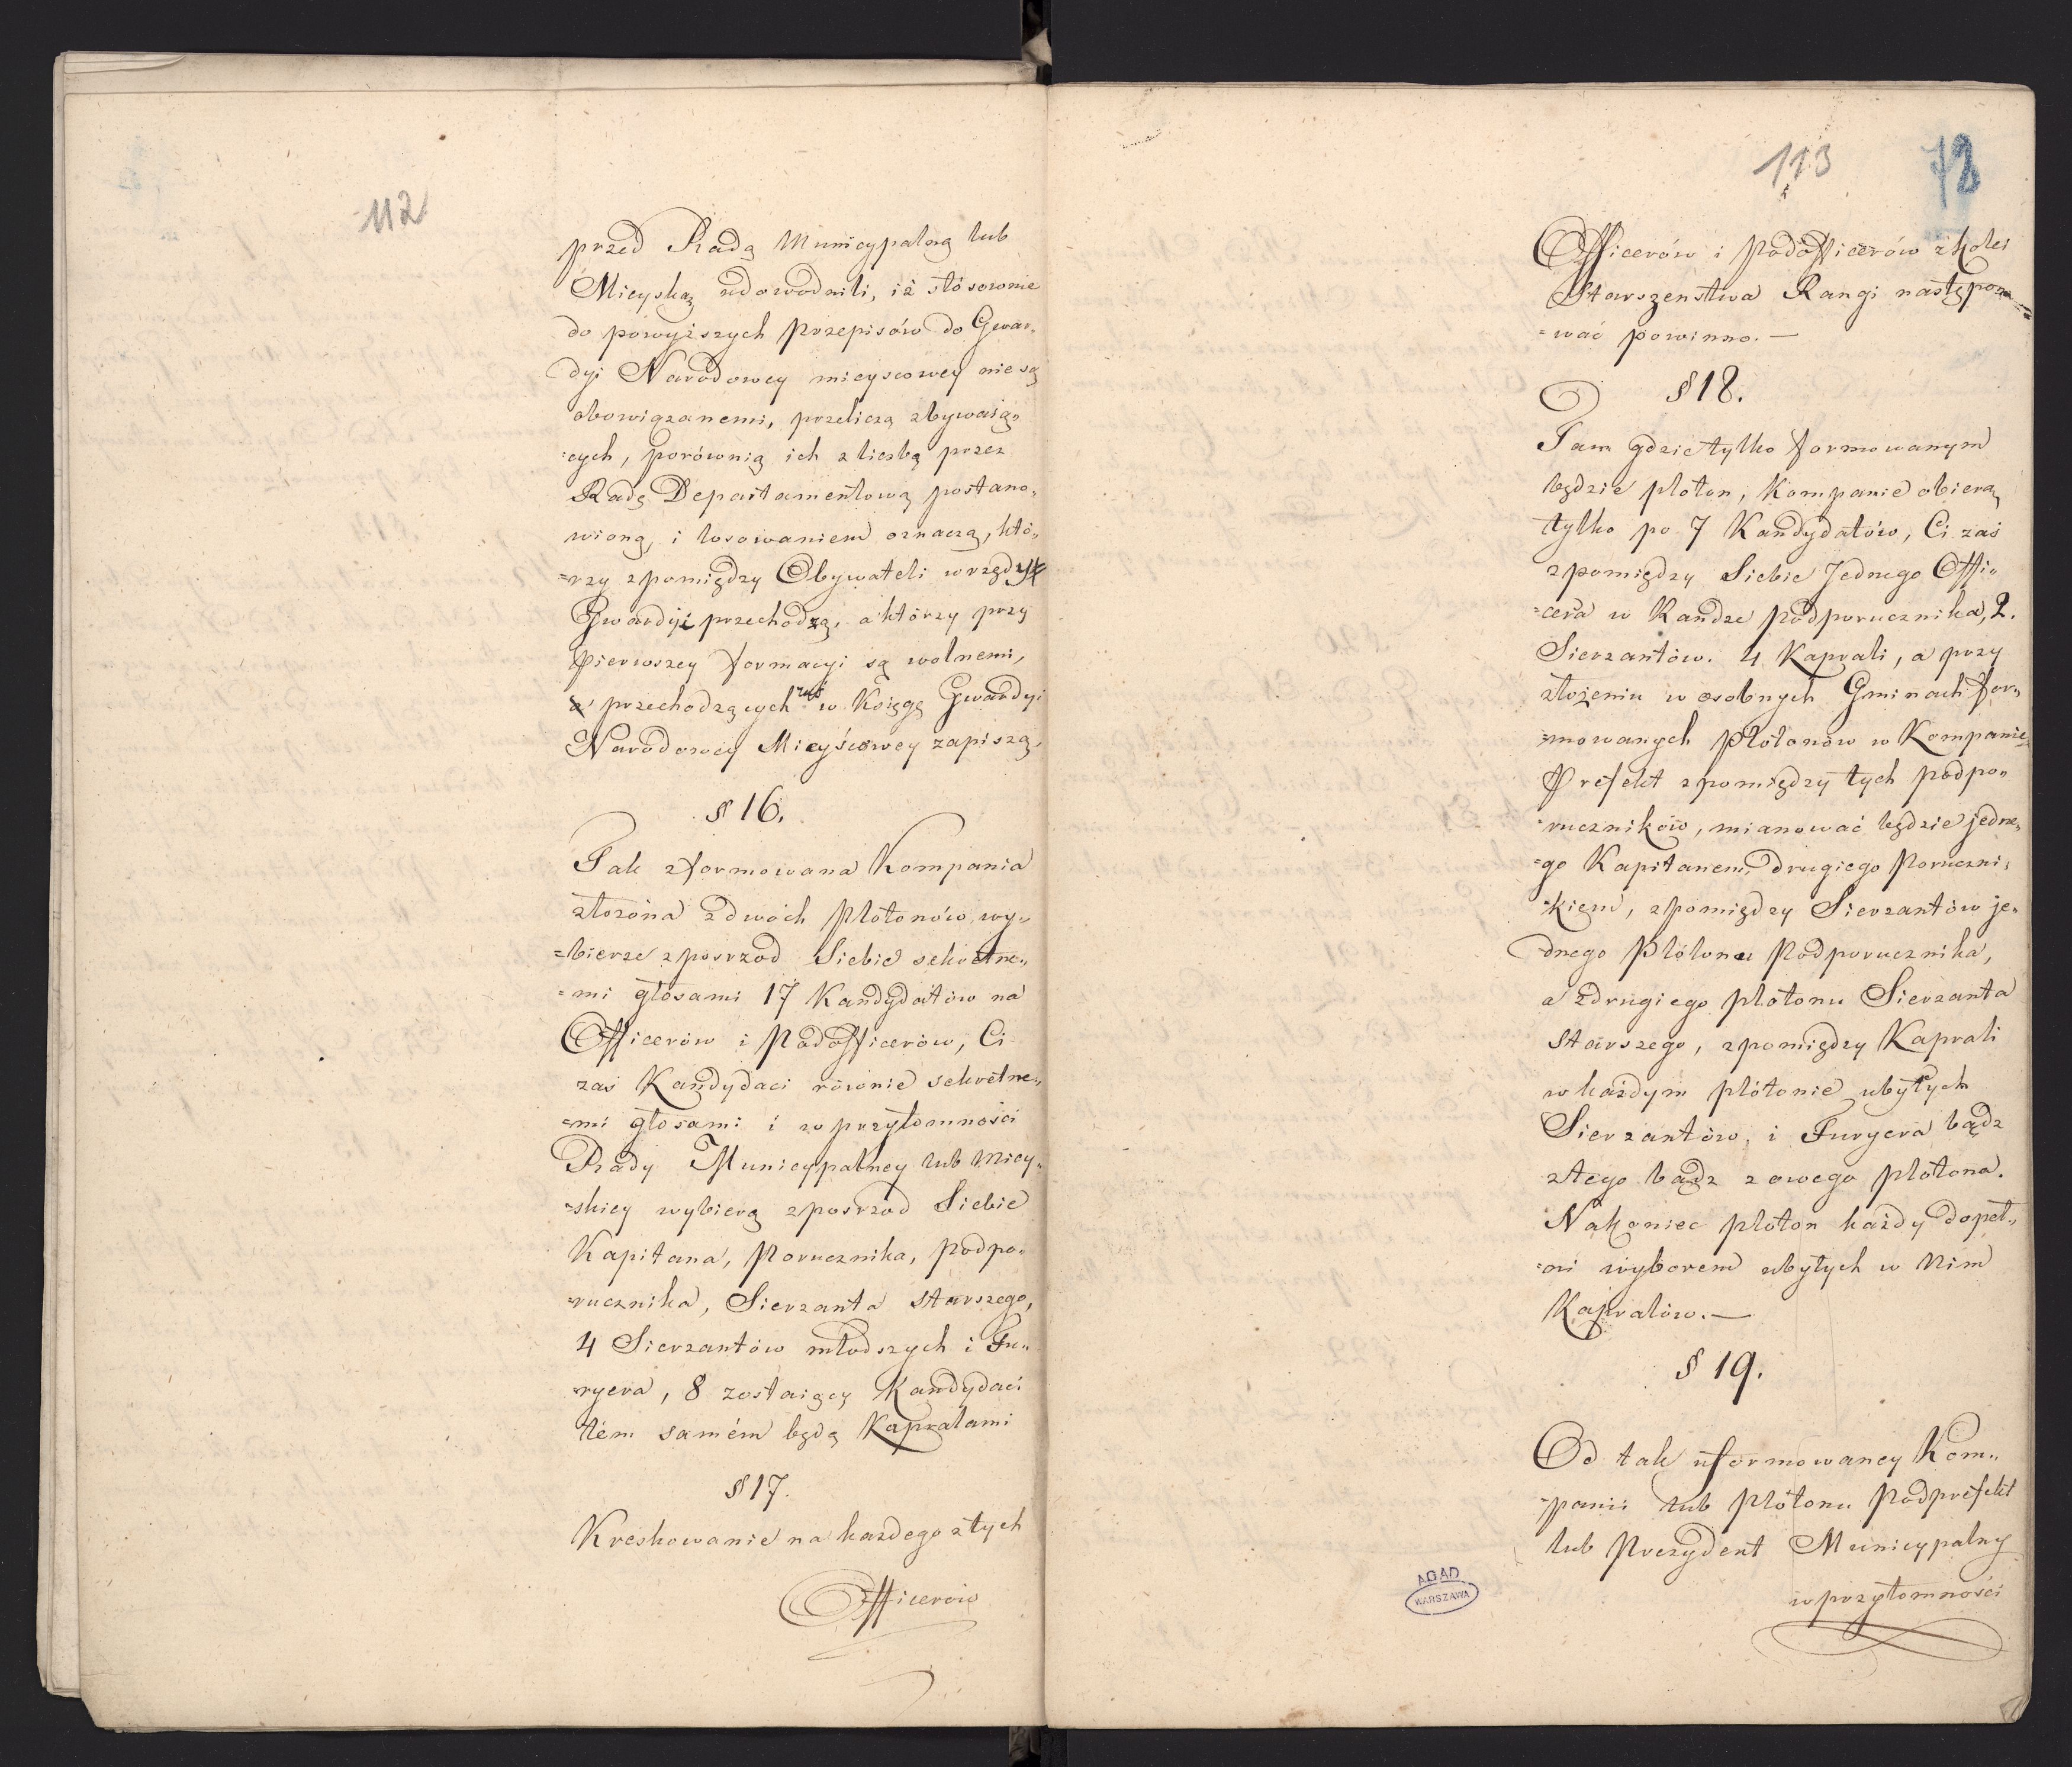 112
przed Radą Municypalną lub
Mieyską udowodnili, iż stósownie
do powyższych Przepisów do Gwar„
dyi Narodowey mieyscowey nie są
obowiązanemi, przeliczą zbywaią„
=cych, porównią ich z liczbą przez
Radę Departamentową postano„
wioną, i losowaniem oznaczą, któ„
=rzy zpomiędzy Obywateli w rzędzy
Gwardyi przechodzą, a którzy przy
pierwszey formacyi są wolnemi,
przechodzących zaś w Księgę Gwardyi
Narodowey Mieyścowey zapiszą.
§ 16.
Tak zformowana Kompania
złożona zdwóch Plótonów, wy„
=bierze zposrzod Siebie sekretne„
=mi głosami 17 Kandydatów na
Officerów i Podofficerów, Ci
zaś Kandydaci równie sekretne„
=mi głosami i w przytomności
Rady Municypalney lub Miey„
=skiey wybierą zposrzod Siebie
Kapitana, Porucznika, Podpo„
=rucznika, Sierzanta Starszego,
4 Sierzantów młodszych i Fu„
=ryera, 8 zostaiący Kandydaci
tém samém będą Kapralami
§ 17.
Kreskowanie na każdego ztych
Officerów
113
78
Officerów i Podofficerów zkolei
Starszenstwa Rangi następo„
=wać powinno. —
§ 18.
Tam gdzie tylko formowanym
będzie ploton, Kompanie obierą
tylko po 7 Kandydatów, Ci zaś
zpomiędzy Siebie Jednego Offi„
=cera w Randze Podporucznika, 2.
Sierzantów. 4 Kaprali, a przy
złożeniu w osobnych Gminach for„
=mowanych Plótonów w Kompanie
Prefekt zpomiędzy tych podpo„
=ruczników, mianować będzie jedne„
=go Kapitanem, drugiego Poruczni„
=kiem, zpomiędzy Sierzantów je„
dnego Plótonu Podporucznika,
a zdrugiego plotonu Sierzanta
Starszego, zpomiędzy Kaprali
w każdym plótonie ubyłych
Sierzantów, i Furyera bądz
ztego bądz z owego plótona.
Nakoniec ploton każdy dopeł„
=ni wyborem ubyłych w Nim
Kapralów. —
§ 19.
Od tak uformowaney Kom„
=panii lub Plótonu Podprefekt
lub Prezydent Municypalny
w przytomności
AGAD
WARSZAWA